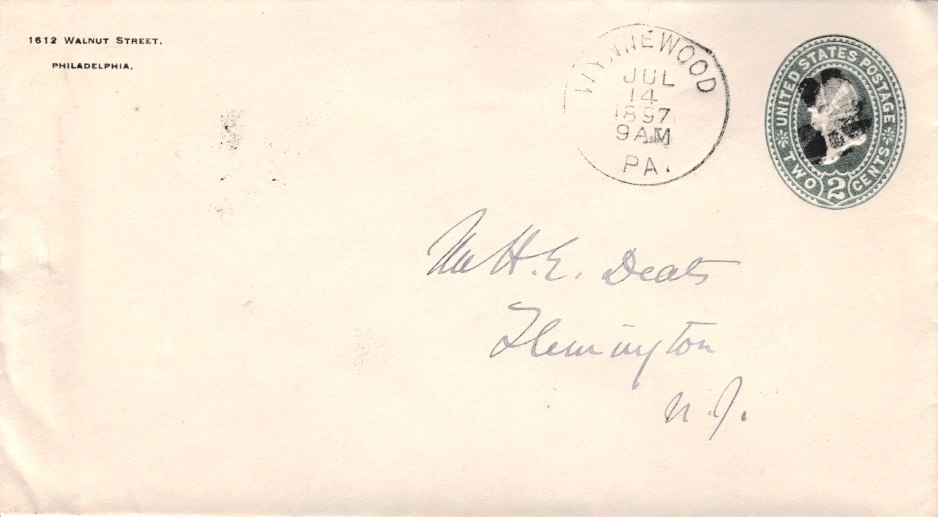 1612 WALNUT STREET,
PHILADELPHIA,
WYNNEWOOD
JUL
14
1897
9AM
PA.
UNITED STATES POSTAGE
TWO 2 CENTS
Mr H. E. Deats
Flemington
N. J.